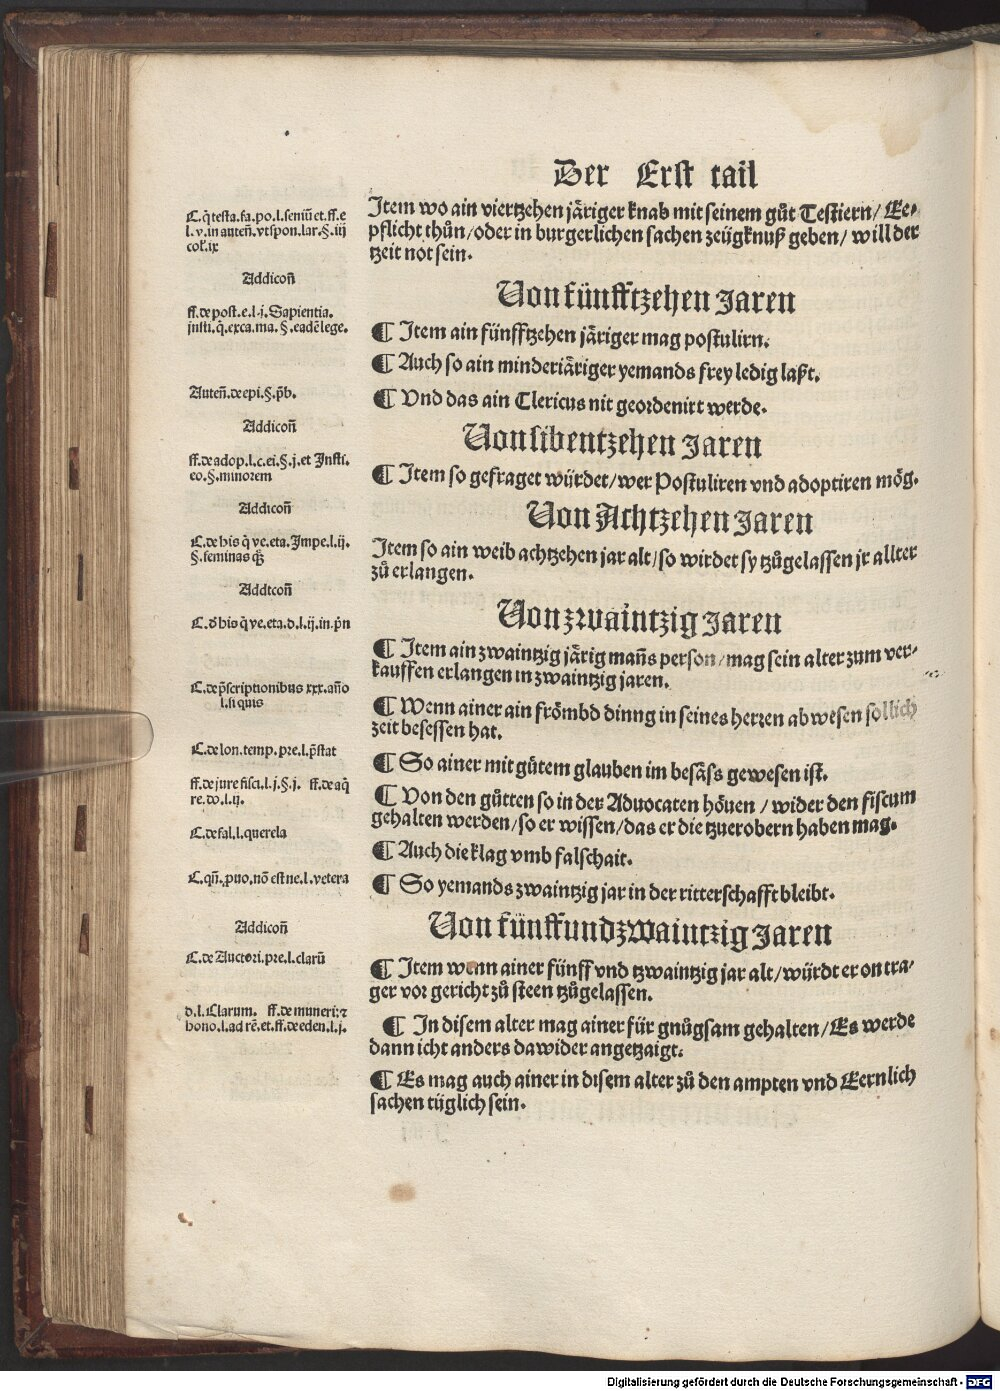 Der Erst tail
C.q̄ testa.fa.po.l.femū et.ff.e
l.v.in auteñ.vt spon.lar.§.iij
col̄.ix
Item wo ain viertzehen järiger knab mit seinem gůt Testiern/ Ee-
pflicht thůn/oder in burgerlichen sachen zeügknuß geben/ will der
tzeit not sein.
Addicoñ
Von fünfftzehen Jaren
ff.de post.e.l.j.Sapientia.
insti.q̄.exca.ma.§.eadē lege.
¶ Item ain fünfftzehen järiger mag postulirn.
¶ Auch so ain minderjäriger yemands frey ledig laßt.
Auteñ.de epi.§.p̄b.
¶ Vnd das ain Clericus nit geordenirt werde.
Addicoñ
Von sibentzehen Jaren
ff.de adop.l.c.ei.§.j.et Insti.
eo.§.minorem
¶ Item so gefraget würdet/wer Postuliren vnd adoptiren mög.
Addicoñ
Von Achtzehen Jaren
C.de his q̄ ve.eta.Impe.l.ij.
§.feminas
Item so ain weib achtzehen jar alt/so wirdet sy tzůgelassen jr allter
zů erlangen.
Addicoñ
Von zwaintzig Jaren
C.d̄ his q̄ ve.eta.d.l.ij.in.p̄n
¶ Item ain zwaintzig järig mañs person/mag sein alter zum ver-
kauffen erlangen in zwaintzig jaren.
C.de p̄scriptionibus xxx.año
l.si quis
¶ Wenn ainer ain frömbd dinng in seines herren abwesen sollich
zeit besessen hat.
C.de lon.temp.pre.l.p̄stat
¶ So ainer mit gůtem glauben im besäss gewesen ist.
ff.de jure fisci.l.j.§.j. ff.de aq̄
re.do.l.ij.
¶ Von den gůtten so in der Aduocaten höuen / wider den fiscum
gehalten werden/so er wissen/das er die tzuerobern haben mag.
C.de fal.l.querela
¶ Auch die klag vmb falschait.
C.qñ.puo.nō est ne.l.vetera
¶ So yemands zwaintzig jar in der ritterschafft bleibt.
Addicoñ
Von fünffundzwaintzig Jaren
C.de Auctori.pre.l.clarū
¶ Item wenn ainer fünff vnd tzwaintzig jar alt/würdt er on tra-
ger vor gericht zů steen tzůgelassen.
d.l.Clarum. ff.de muneri:⁊
bono.l.ad rē.et.ff.de eden.l.j.
¶ In disem alter mag ainer für gnůgsam gehalten/Es werde
dann icht anders dawider angetzaigt.
¶ Es mag auch ainer in disem alter zů den ampten vnd Eernlich
sachen tüglich sein.
Digitalisierung gefördert durch die Deutsche Forschungsgemeinschaft - DFG